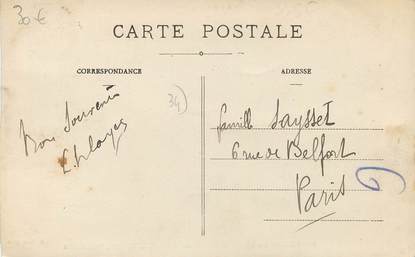 30 €
CARTE POSTALE
CORRESPONDANCE
ADRESSE
34
Bon Souvenir
famille Saysset
6 rue de Belfort
Paris